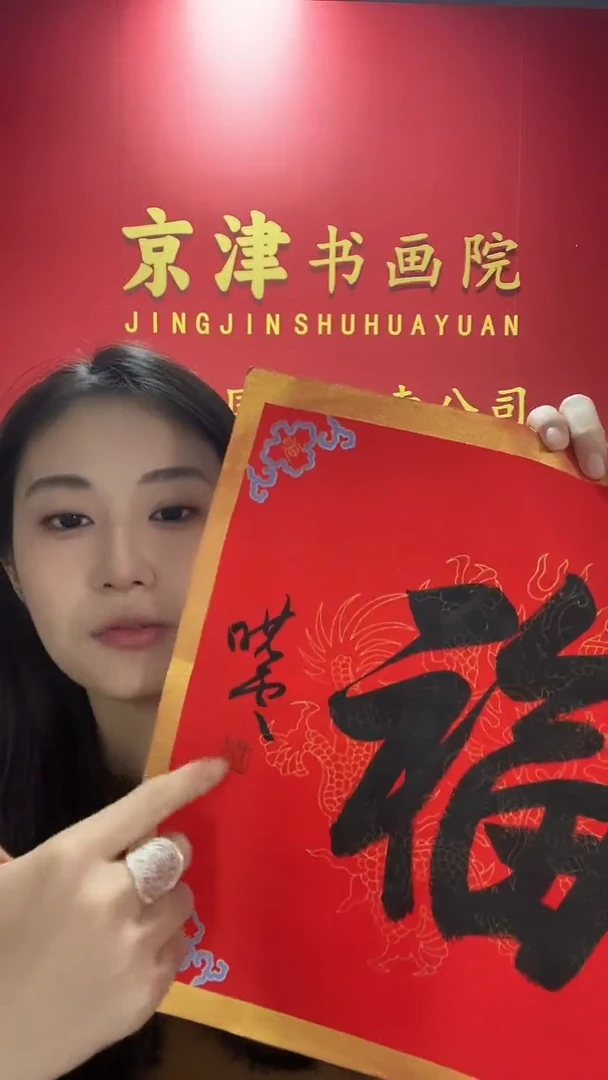 京津书画院
JINGJINSHUHUAYUAN
公司
福